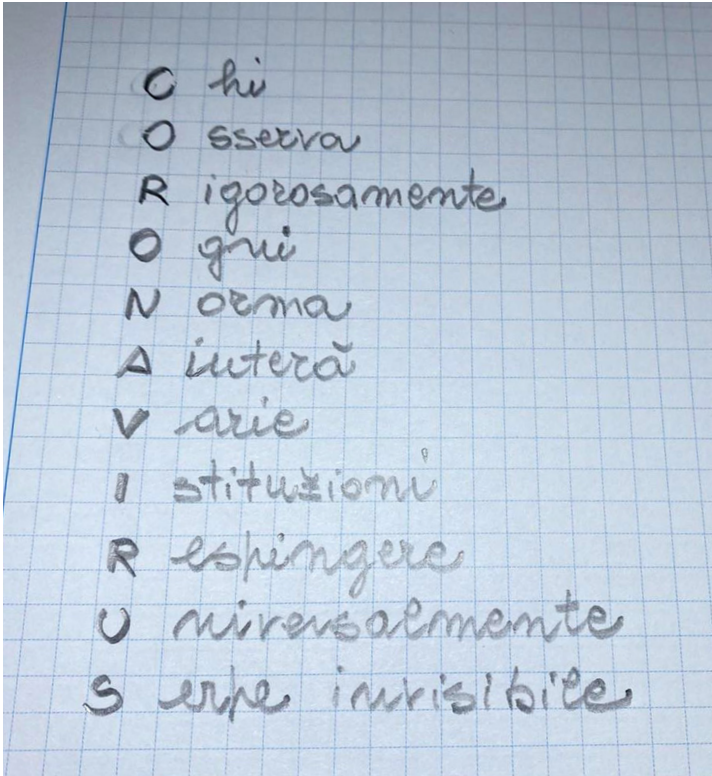 C hi
O sserva
R igorosamente
O gni
N orma
A iuterà
V arie
I stituzioni
R espingere
U niversalmente
S erpe invisibile